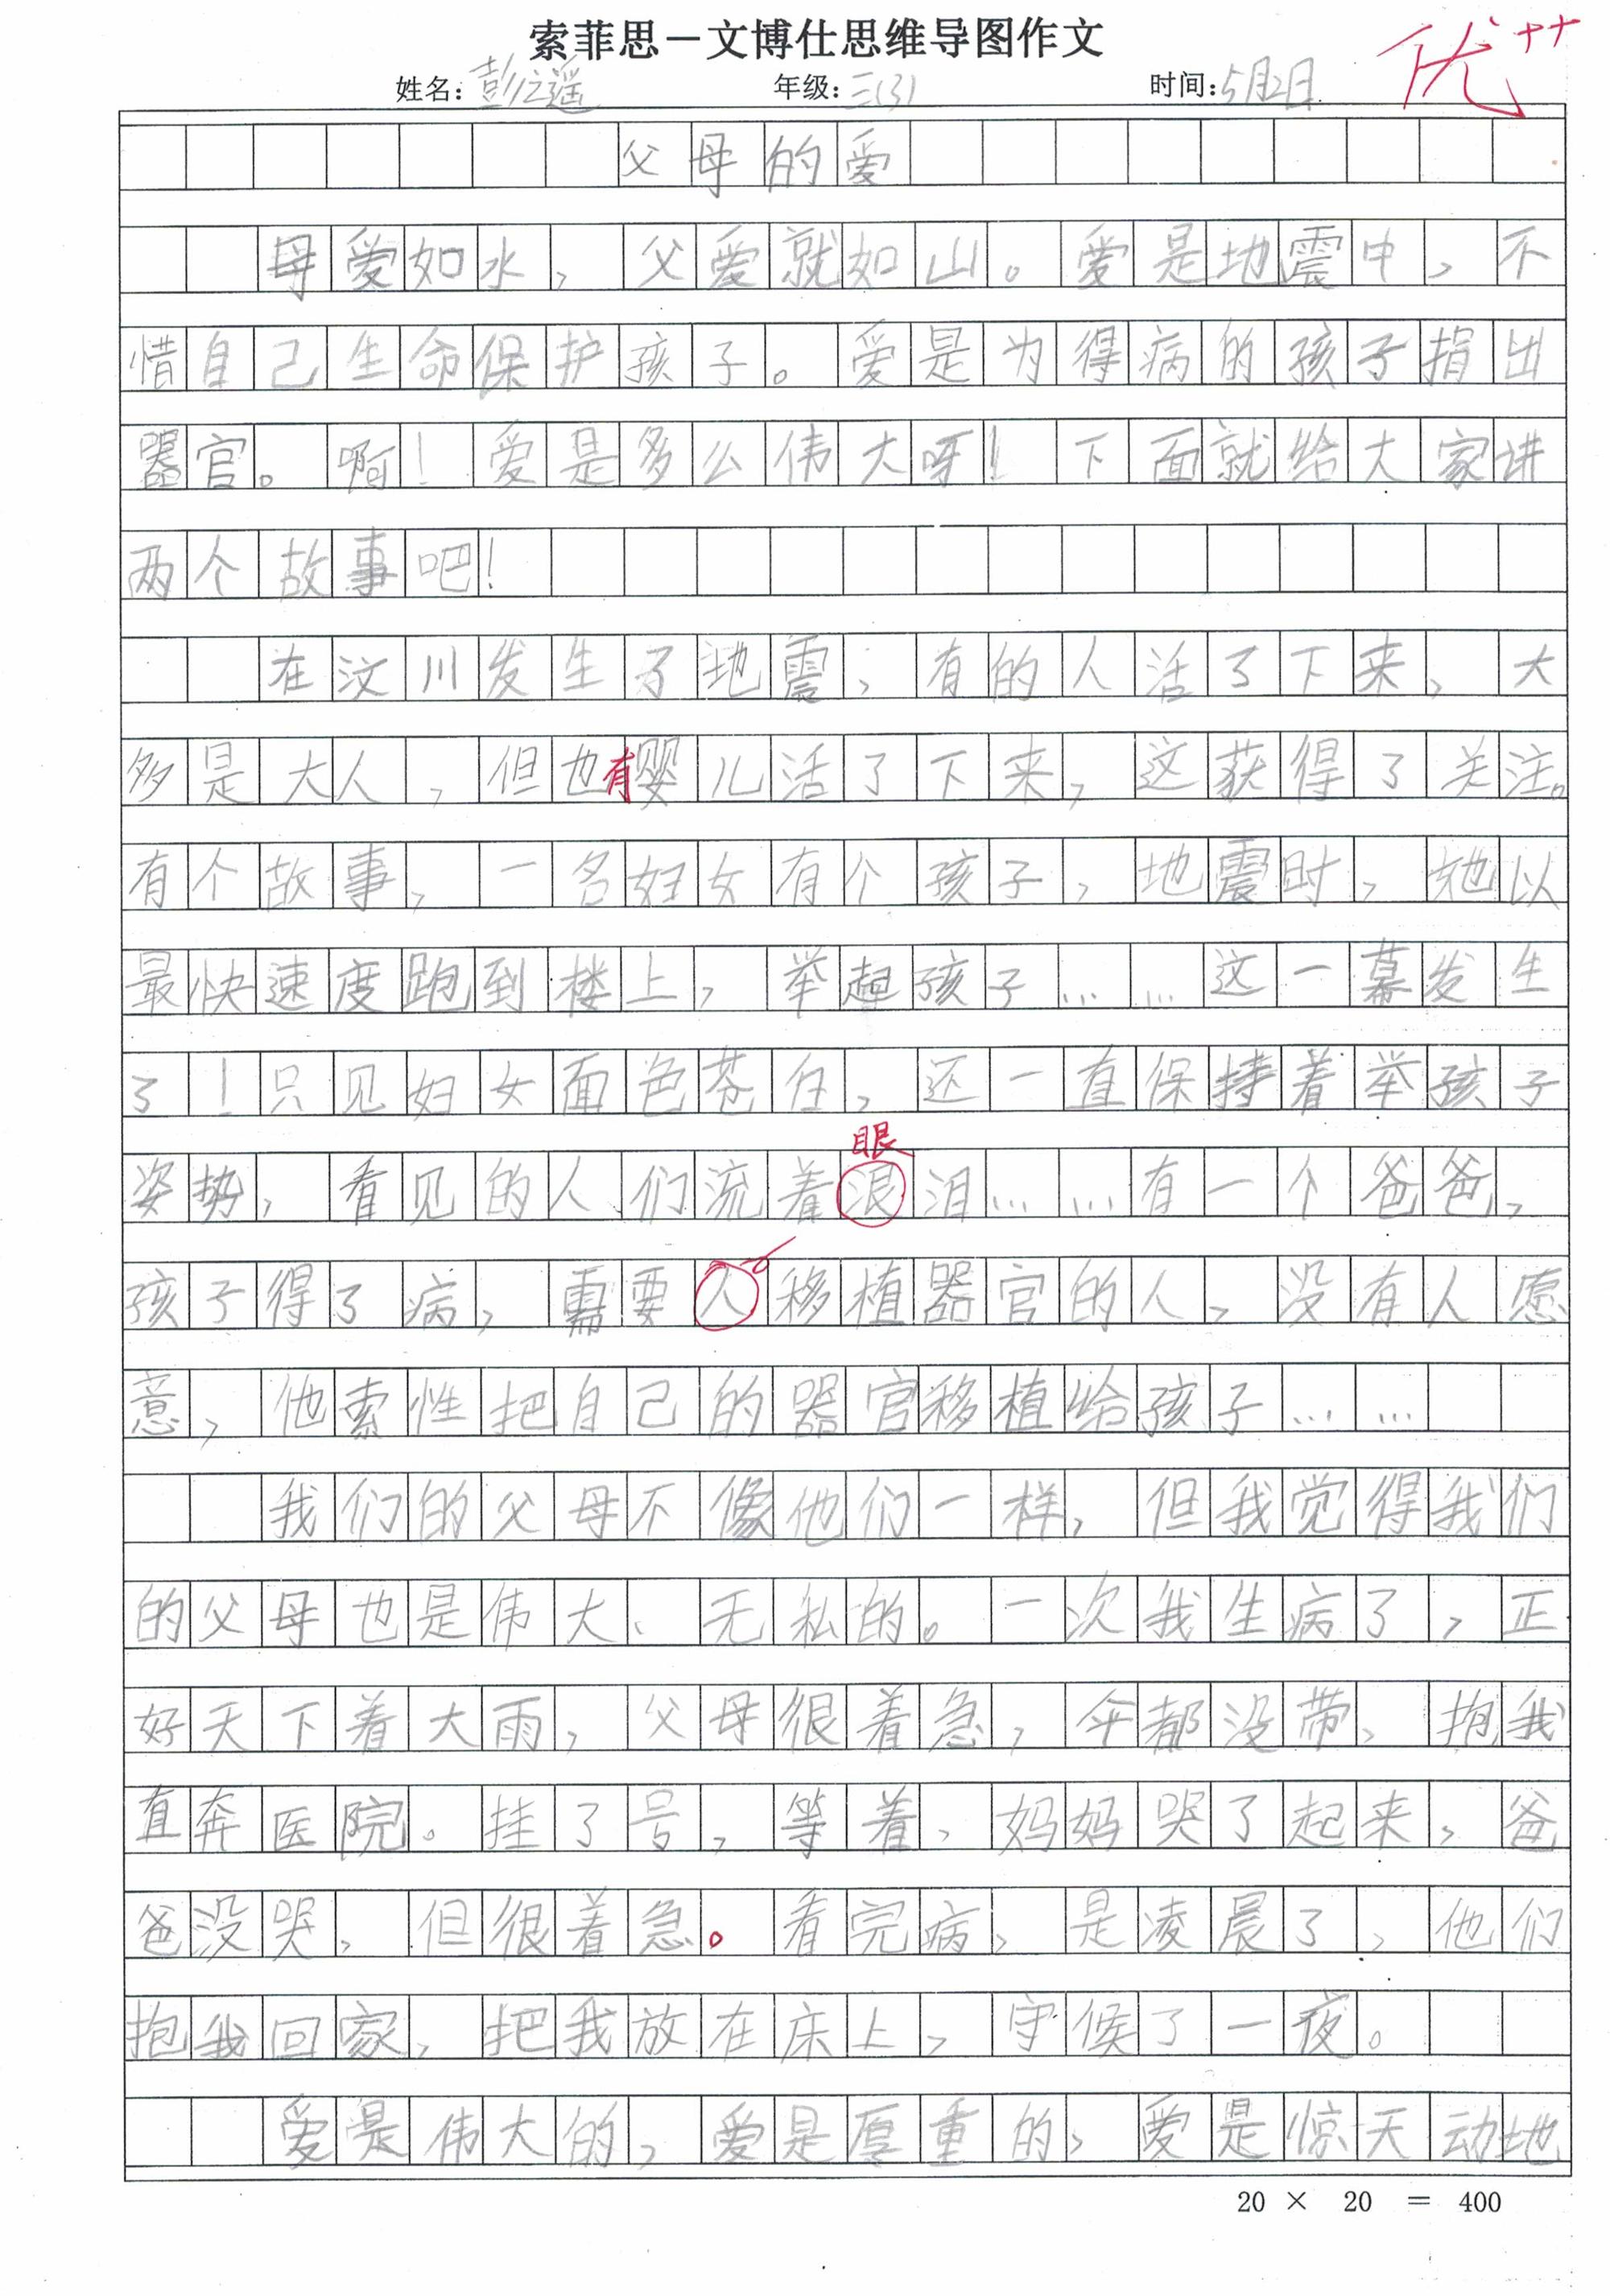 索菲思－文博仕思维导图作文
优++
姓名：彭之遥 年级：三(3) 时间：5月2日
父母的爱
母爱如水，父爱就如山。爱是地震中，不
惜自己生命保护孩子。爱是为得病的孩子捐出
器官。啊！爱是多么伟大呀！下面就给大家讲
两个故事吧！
在汶川发生了地震，有的人活了下来，大
多是大人，但也有婴儿活了下来，这获得了关注。
有个故事，一名妇女有个孩子，地震时，她以
最快速度跑到楼上，举起孩子……这一幕发生
了！只见妇女面色苍白，还一直保持着举孩子
眼
姿势，看见的人们流着泪……有一个爸爸，
孩子得了病，需要人移植器官的人，没有人愿
意，他索性把自己的器官移植给孩子……
我们的父母不像他们一样，但我觉得我们
的父母也是伟大、无私的。一次我生病了，正
好天下着大雨，父母很着急，伞都没带，抱我
直奔医院。挂了号，等着，妈妈哭了起来，爸
爸没哭，但很着急。看完病，是凌晨了，他们
抱我回家，把我放在床上，守候了一夜。
爱是伟大的，爱是厚重的，爱是惊天动地
20 × 20 = 400